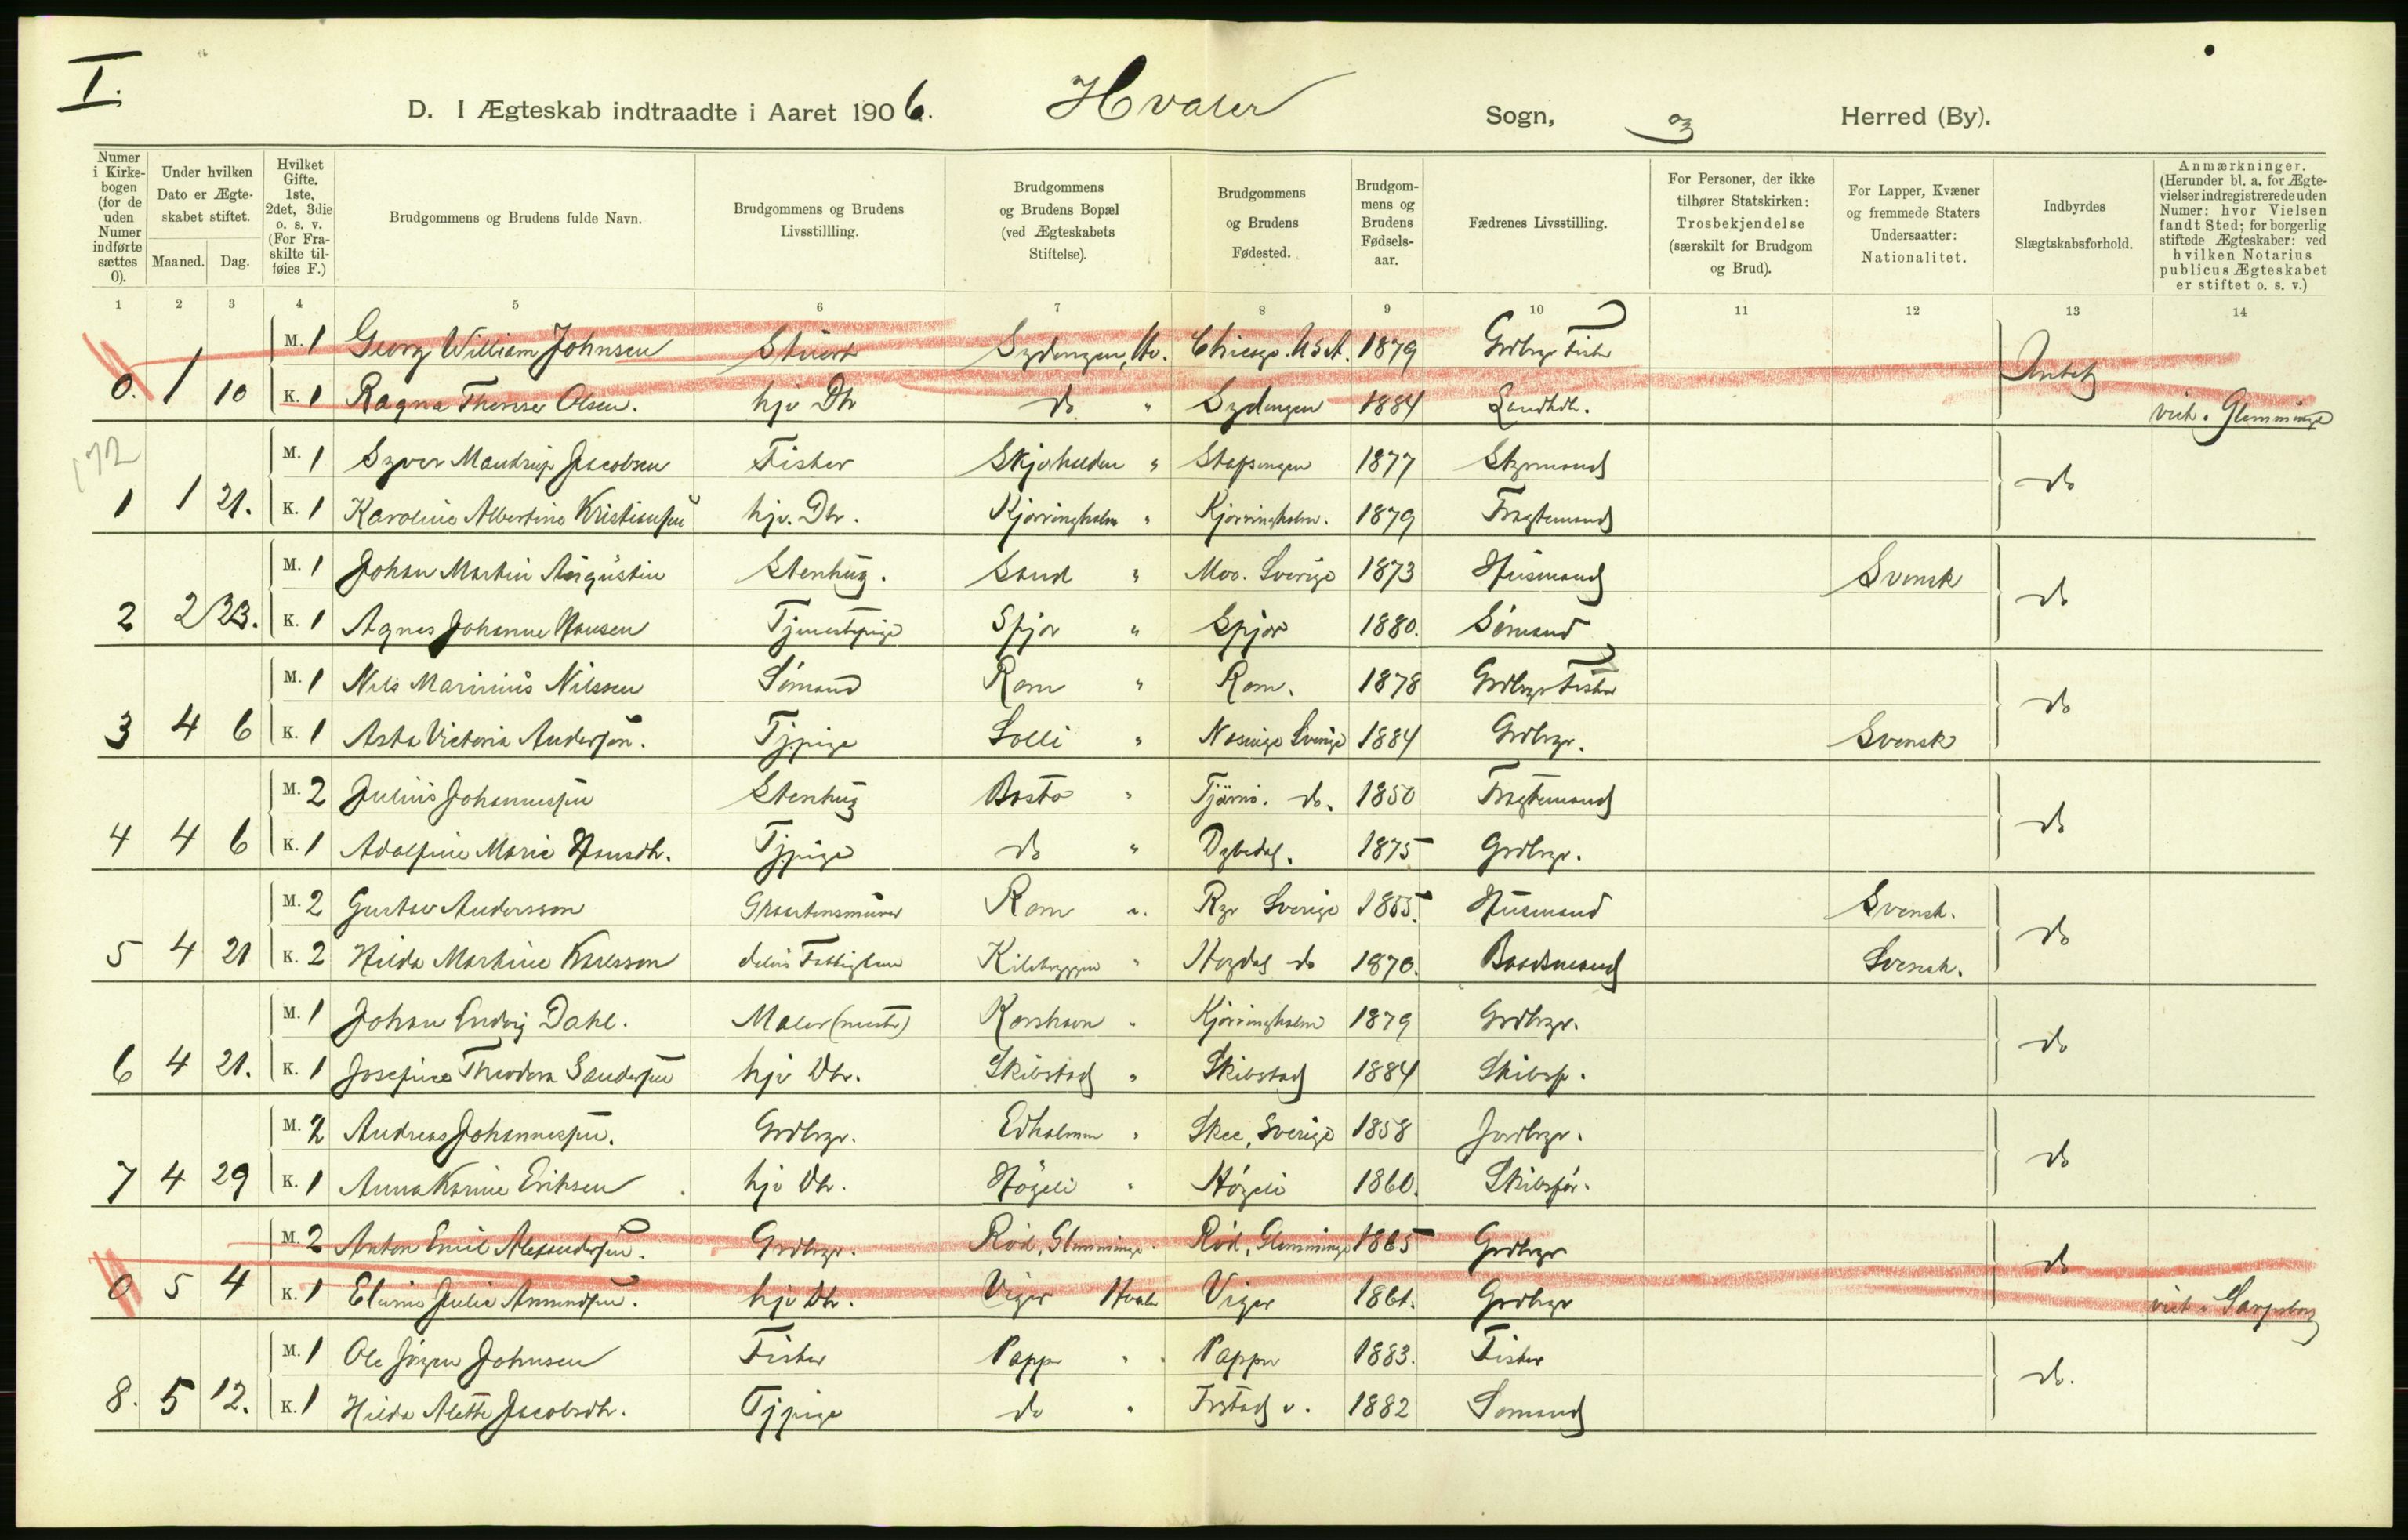 I.
D. I Ægteskab indtraadte i Aaret 1906. Hvaler Sogn, og Herred (By).
Numer i Kirkebogen (for de uden Numer indførte sættes 0).
Under hvilken Dato er Ægteskabet stiftet.
Maaned. Dag.
Hvilket Gifte. 1ste, 2det, 3die o. s. v. (For Fraskilte tilføies F.)
Brudgommens og Brudens fulde Navn.
Brudgommens og Brudens Livsstillling.
Brudgommens og Brudens Bopæl (ved Ægteskabets Stiftelse).
Brudgommens og Brudens Fødested.
Brudgommens og Brudens Fødselsaar.
Fædrenes Livsstilling.
For Personer, der ikke tilhører Statskirken: Trosbekjendelse (særskilt for Brudgom og Brud).
For Lapper, Kvæner og fremmede Staters Undersaatter: Nationalitet.
Indbyrdes Slægtskabsforhold.
Anmærkninger. (Herunder bl. a. for Ægtevielser indregistrerede uden Numer: hvor Vielsen fandt Sted; for borgerlig stiftede Ægteskaber: ved hvilken Notarius publicus Ægteskabet er stiftet o. s. v.)
1 2 3 4 5 6 7 8 9 10 11 12 13 14
M. 1 Georg William Johnsen Sydengen, Hv. Chicago. U.S.A. 1879 Grdbrgr Fisker
0. 1 10 K. 1 Ragna Therese Olsen. hjv Dtr do " Sydengen 1884 Landhdl. viet i Glemminge
172
M. 1 Syver Mandrup Jacobsen Fisker Skjærhalden " 1877 Styrmand
1 1 21. K. 1 Karoline Albertine Kristiansen hjv. Dtr. Kjørringholm " Kjørringholm. 1879 Fragtemand do
M. 1 Johan Martin Augustin Stenhug. Sand " Moo. Sverige 1873 Husmand Svensk
2 2 23. K. 1 Agnes Johanne Hansen Tjenestepige Spjær " Spjær 1880. Sømand do
M. 1 Nils Marinius Nilssen Sømand Rom " Rom. 1878 Grdbrgr Fisker
3 4 6 K. 1 Asta Victoria Andersen. Tjpige Lolli " Nesinge Sverige 1884 Grdbrgr. Svensk do
M. 2 Julius Johannesen Stenhug Basto " Tjärnö. do. 1850 Fragtemand
4 4 6 K. 1 Adolfine Marie Hansdtr. Tjpige do " Dybedal. 1875 Grdbrgr. do
M. 2 Gustav Andersson Rom ". Ryr Sverige 1855. Husmand Svensk.
5 4 21 K. 2 Hilda Martine Karlsson Kilebryggen " Hogdal do 1870. Baadsmand Svensk. do
M. 1 Johan Ludvig Dahl. Maler (mester) Korshavn " Kjørringholm 1879 Grdbrgr.
6 4 21. K. 1 Josefine Theodora Sandersen hjv Dtr. Skibstad " Skibstad 1884 Skibsf. do
M. 2 Andreas Johannesen. Grdbrgr. Edholmen " Skee, Sverige 1858 Jordbrgr.
7 4 29 K. 1 Anna Karine Eriksen hjv Dtr. Högeli " Högeli 1860. Skibsfør. do
M. 2 Anton Emil Alexandersen. Grdbrgr. Rød, Glemminge. Rød, Glemminge 1865 Grdbrgr
0 5 4 K. 1 Julie Amundsen. hjv Dtr. Viger Hvaler Viger 1861. Grdbrgr do viet i Sarpsborg
M. 1 Ole Jörgen Johnsen Fisker Papper " Papper 1883. Fisker
8. 5 12. K. 1 Hilda Alette Jacobsdtr. Tjpige do " 1882 Sømand do.